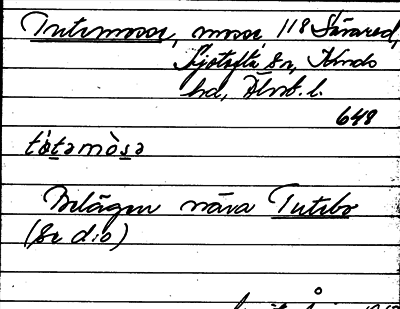 Tutemossa, mossa 118 Sävared,
Sjötofta sn, Kinds
hd, Älvsb. l.
648
tótəmòsə
Belägen nära Tutebo
(se d:o)